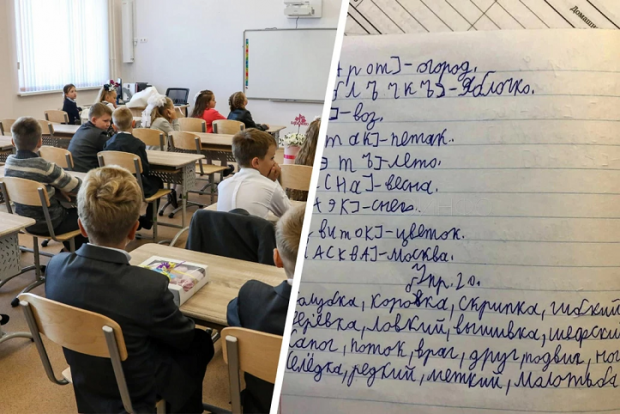 Домашн
рот]-огород.
ЛЪЧКЪ]-Яблочко.
]-воз.
так]-петак.
ЭТЪ]-лето.
СНА]-весна.
ЭК]-снег.
виток]-цветок.
[АСКВА]-Москва.
Упр. 20.
олубка, коровка, скрипка, гибкий
ерёвка, ловкий, вышивка, шефский
апог, поток, враг, друг, подвиг, но
елёдка, редкий, меткий, малотьба